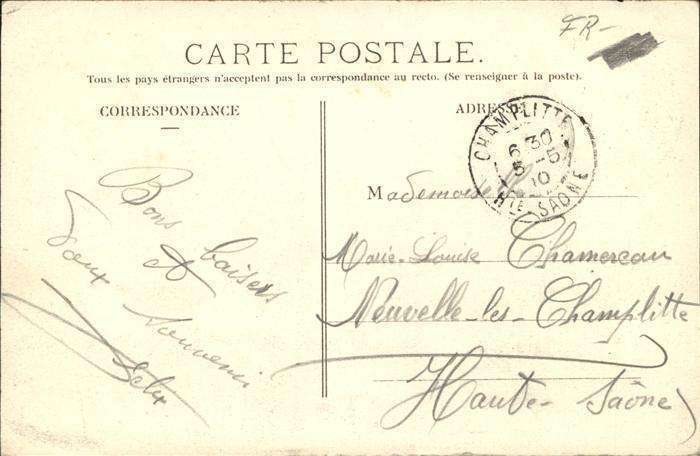 FR-
CARTE POSTALE.
Tous les pays étrangers n'acceptent pas la correspondance au recto. (Se renseigner à la poste).
CORRESPONDANCE
ADRESSE
CHAMPLITTE
6 30
5 -5
10
HTE SAÔNE
Mademoiselle
Marie-Louise Chamereau
Neuvelle-les-Champlitte
Haute-Saône
Bons baisers
et
doux souvenir